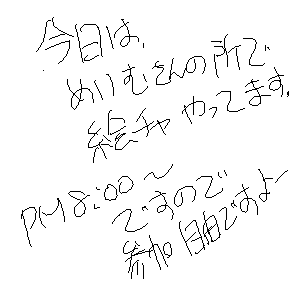 今日は、
めいむさんの所で
絵チャやってます。
PM8:00〜
ですので
参加自由ですよ〜